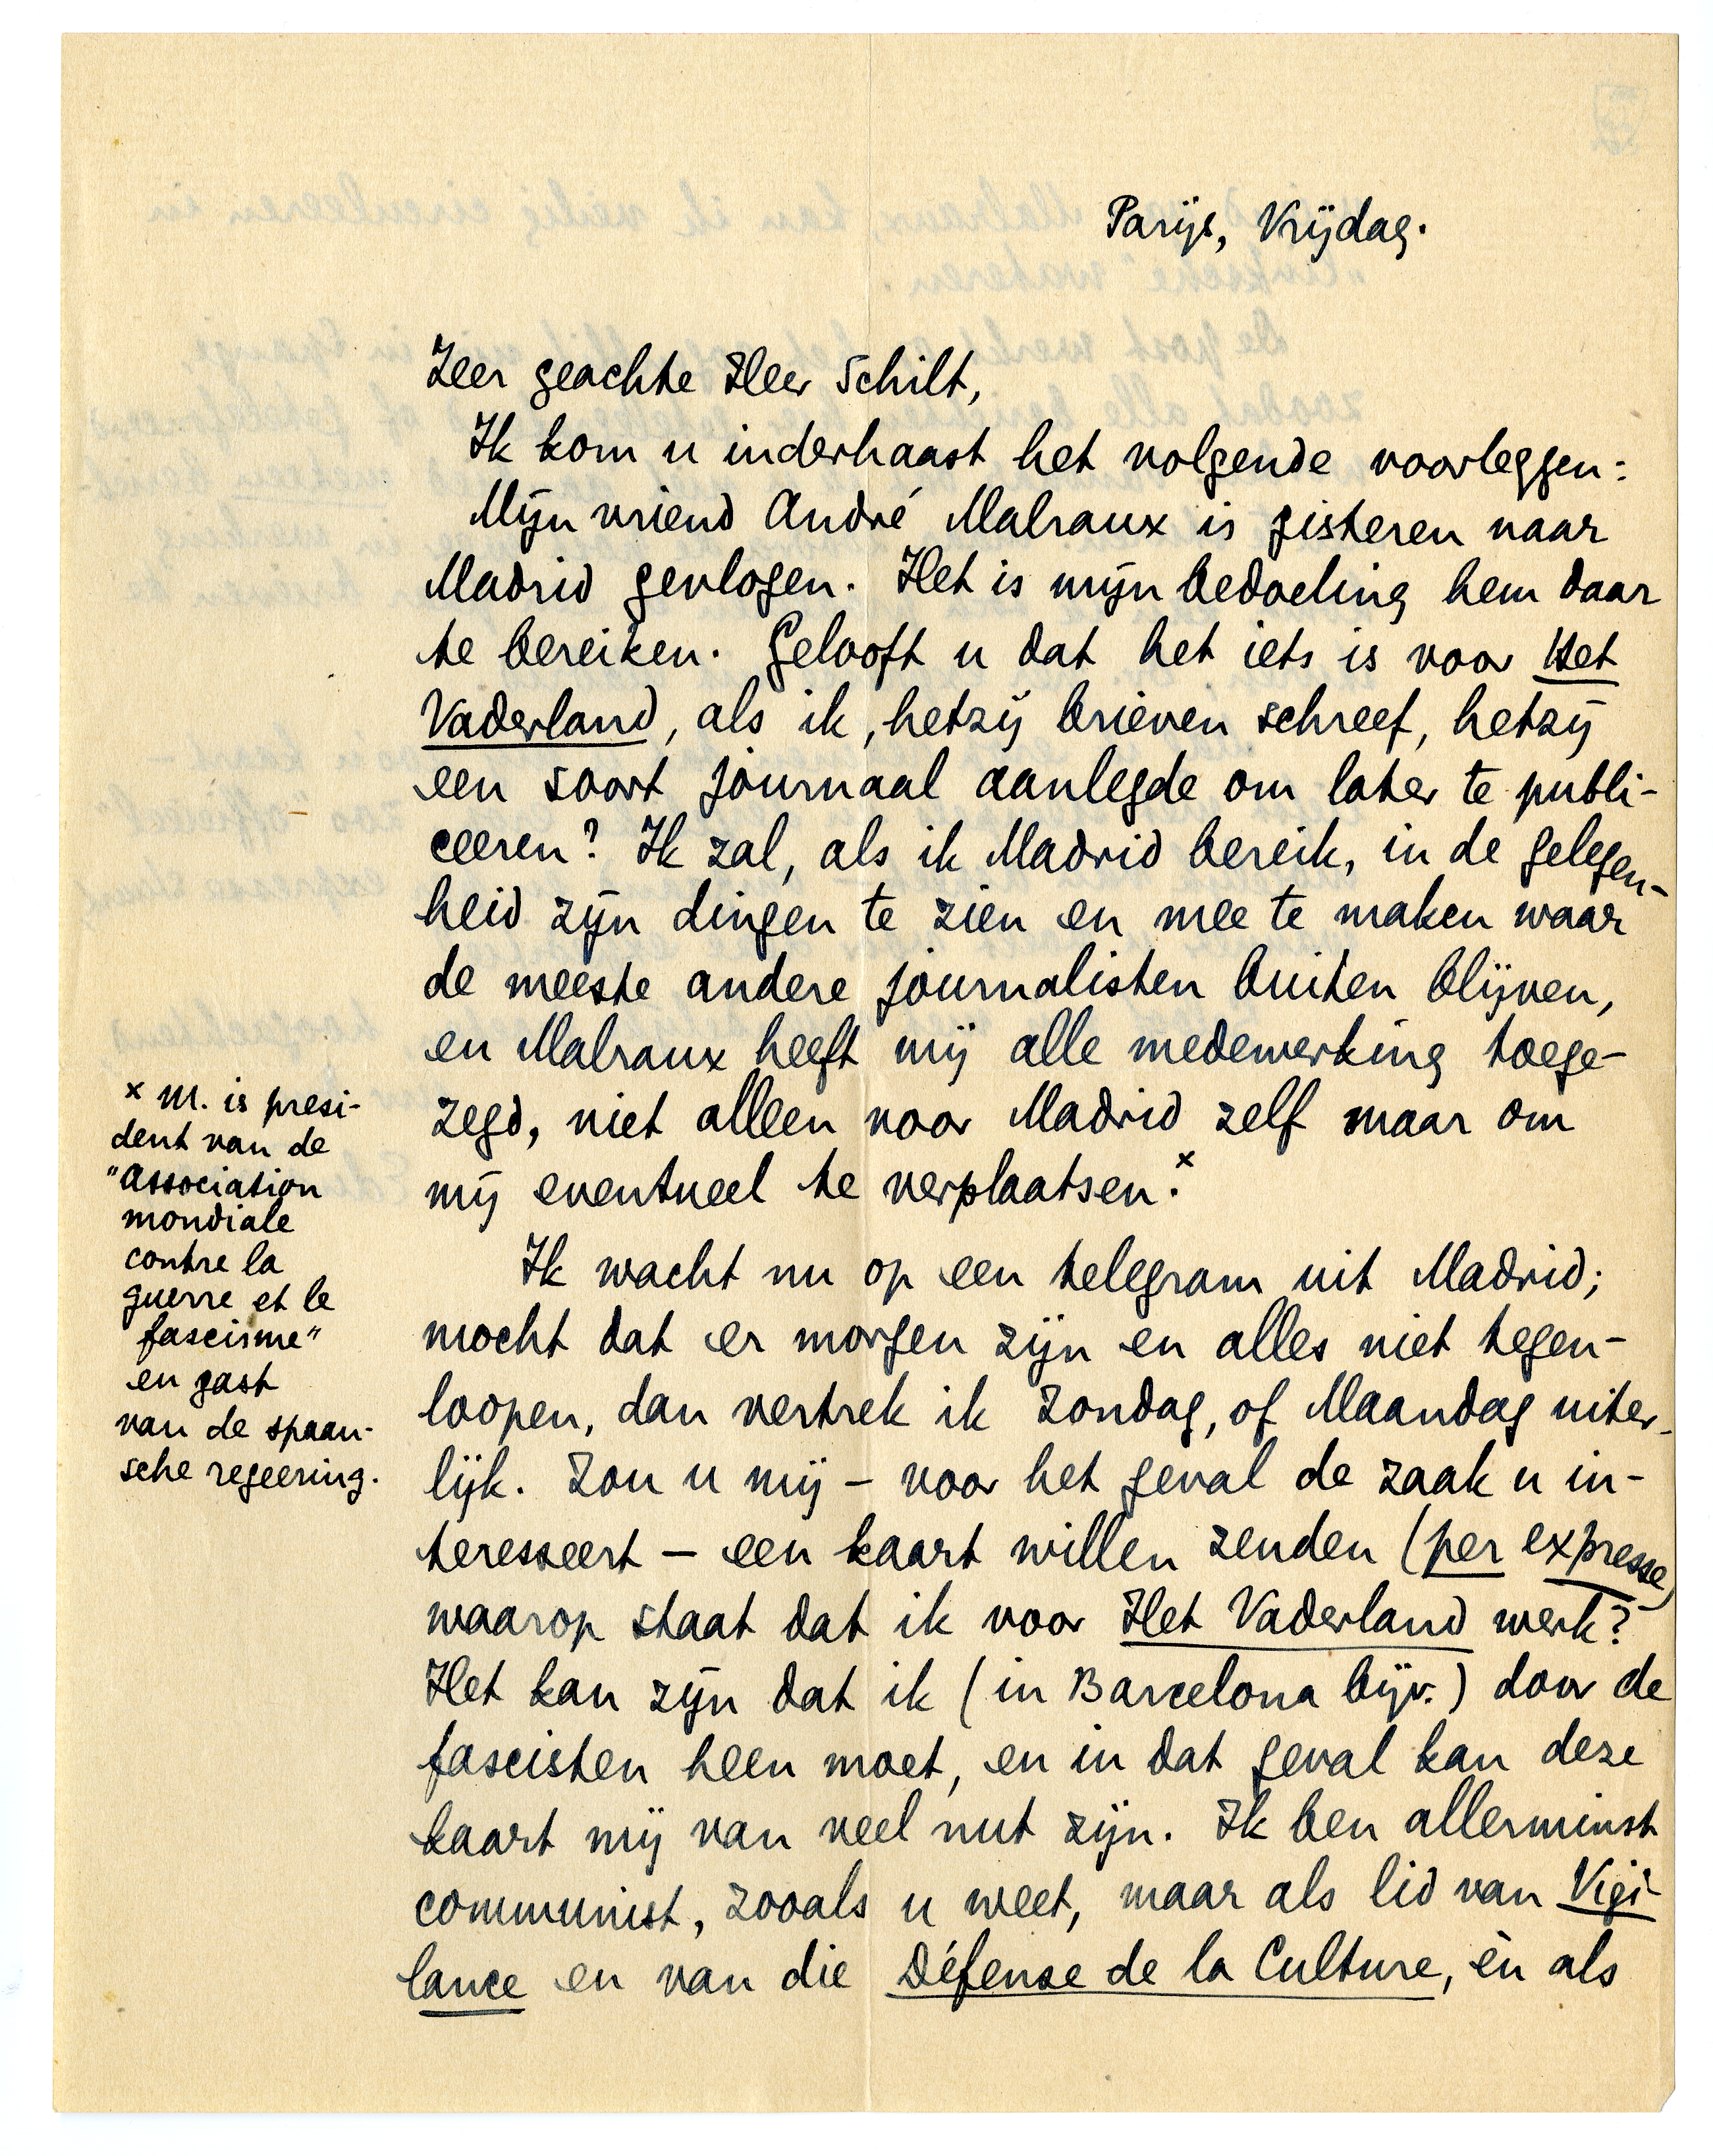 Parijs, Vrijdag.
Zeer geachte Heer Schilt,
Ik kom u inderhaast het volgende voorleggen:
Mijn vriend André Malraux is gisteren naar
Madrid gevlogen. Het is mijn bedoeling hem daar
te bereiken. Gelooft u dat het iets is voor Het
Vaderland, als ik, hetzij brieven schreef, hetzij
een soort journaal aanlegde om later te publi-
ceeren? Ik zal, als ik Madrid bereik, in de gelegen-
heid zijn dingen te zien en mee te maken waar
de meeste andere journalisten buiten blijven,
en Malraux heeft mij alle medewerking toege-
zegd, niet alleen voor Madrid zelf maar om
mij eventueel te verplaatsen.x
x M. is presi-
dent van de
"Association
mondiale
contre la
guerre et le
fascisme"
en gast
van de spaan-
sche regeering.
Ik wacht nu op een telegram uit Madrid;
mocht dat er morgen zijn en alles niet tegen-
loopen, dan vertrek ik Zondag, of Maandag uiter-
lijk. Zou u mij – voor het geval de zaak u in-
teresseert – een kaart willen zenden (per expresse)
waarop staat dat ik voor Het Vaderland werk?
Het kan zijn dat ik (in Barcelona bijv.) door de
fascisten heen moet, en in dat geval kan deze
kaart mij van veel nut zijn. Ik ben allerminst
communist, zooals u weet, maar als lid van Vigi-
lance en van die Défense de la Culture, èn als